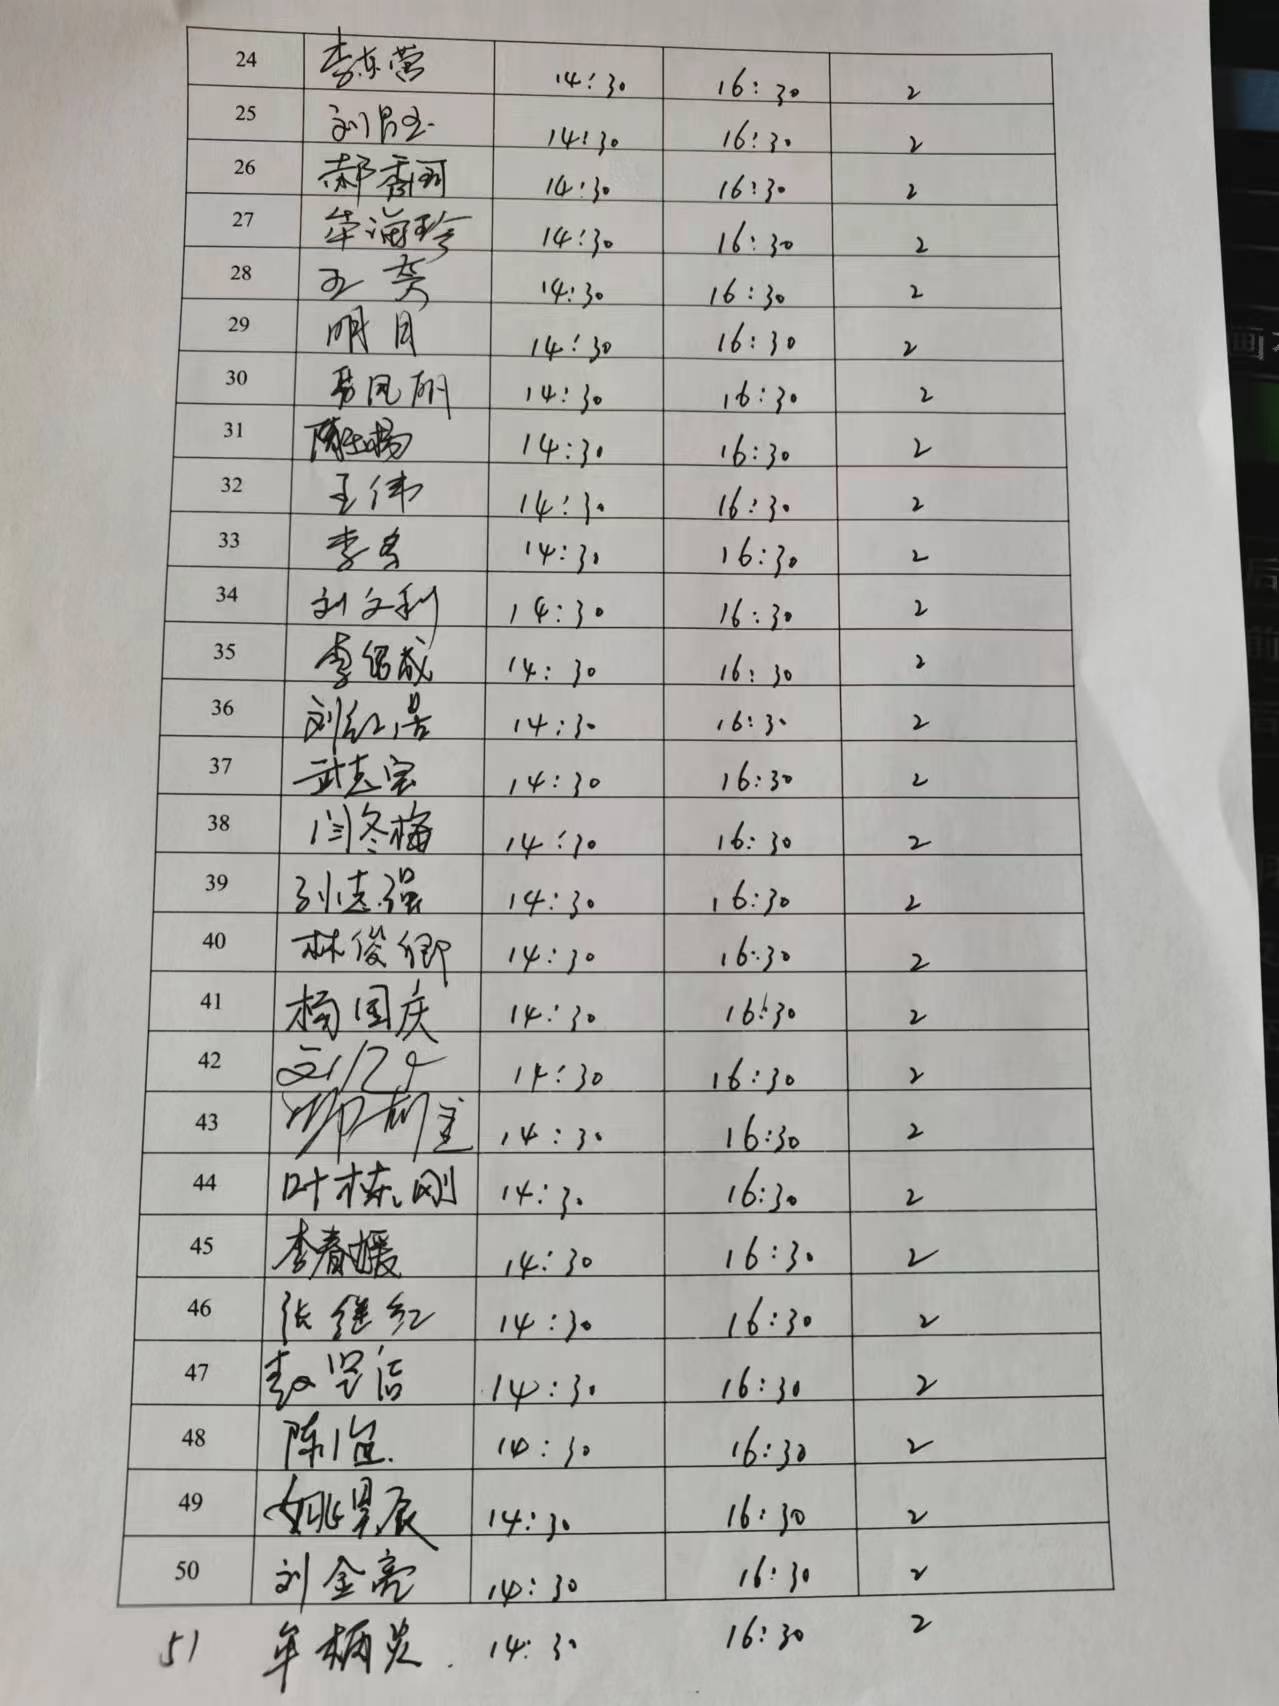 24 李东营 14:30 16:30 2
25 刘昌玉 14:30 16:30 2
26 郝秀丽 14:30 16:30 2
27 华海珍 14:30 16:30 2
28 王 14:30 16:30 2
29 明月 14:30 16:30 2
30 凤丽 14:30 16:30 2
31 陈 杨 14:30 16:30 2
32 王伟 14:30 16:30 2
33 李 14:30 16:30 2
34 刘文利 14:30 16:30 2
35 李绍成 14:30 16:30 2
36 刘红 14:30 16:30 2
37 武志宝 14:30 16:30 2
38 闫冬梅 14:30 16:30 2
39 刘志强 14:30 16:30 2
40 林俊卿 14:30 16:30 2
41 杨国庆 14:30 16:30 2
42 刘 14:30 16:30 2
43 14:30 16:30 2
44 叶栋刚 14:30 16:30 2
45 李春媛 14:30 16:30 2
46 张继红 14:30 16:30 2
47 赵 14:30 16:30 2
48 陈 14:30 16:30 2
49 姚昊辰 14:30 16:30 2
50 刘金亮 14:30 16:30 2
51 年炳炎. 14:30 16:30 2
画
后
前